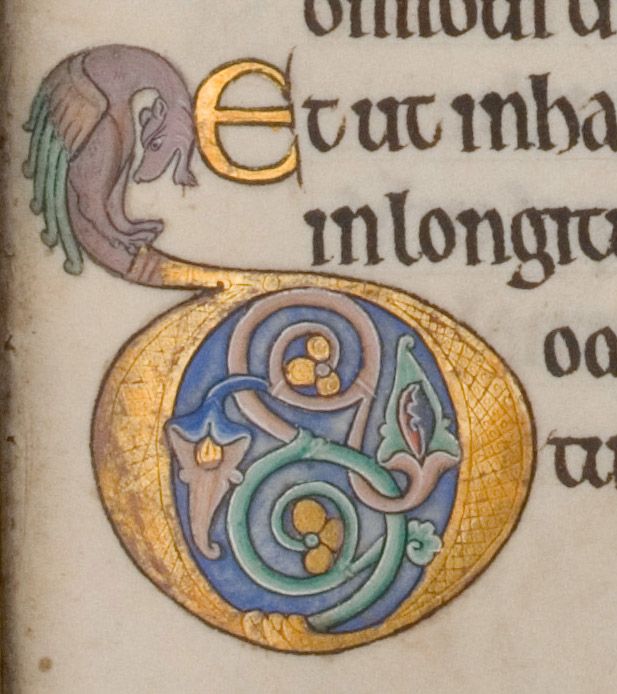 omnibus
Et ut inha
in longitu
D